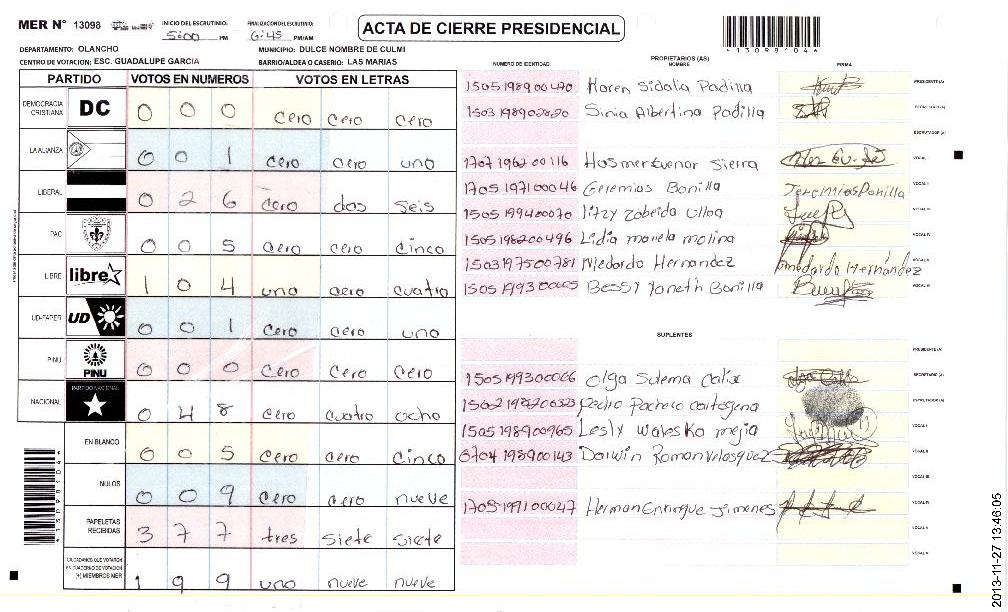 MER N° 13098
INICIO DEL ESCRUTINIO:
5:00 PM
FINALIZACION DEL ESCRUTINIO:
6:45 PM/AM
ACTA DE CIERRE PRESIDENCIAL
*13098104*
DEPARTAMENTO: OLANCHO
MUNICIPIO: DULCE NOMBRE DE CULMI
CENTRO DE VOTACION: ESC. GUADALUPE GARCIA
BARRIO/ALDEA O CASERIO: LAS MARIAS
PARTIDO VOTOS EN NUMEROS VOTOS EN LETRAS
DEMOCRACIA CRISTIANA DC 0 0 0 cero cero cero
LA ALIANZA 0 0 1 cero cero uno
LIBERAL 0 2 6 cero dos seis
PAC 0 0 5 cero cero cinco
LIBRE libre 1 0 4 uno cero cuatro
UD-FAPER UD 0 0 1 cero cero uno
PINU PINU 0 0 0 cero cero cero
NACIONAL PARTIDO NACIONAL 0 4 8 cero cuatro ocho
EN BLANCO 0 0 5 cero cero cinco
NULOS 0 0 9 cero cero nueve
PAPELETAS RECIBIDAS 3 7 7 tres siete siete
CIUDADANOS QUE VOTARON EN CUADERNO DE VOTACION (+) MIEMBROS MER 1 9 9 uno nueve nueve
NUMERO DE IDENTIDAD
PROPIETARIOS (AS)
NOMBRE
FIRMA
1505 1989 00470 Karen Sidalia Padilla PRESIDENTE (A)
Sinia Albertina Padilla SECRETARIO (A)
ESCRUTADOR (A)
1707 1962 00116 Hosmer Euenor Sierra VOCAL I
1705 1971 00046 Geremias Bonilla Jeremias Bonilla VOCAL II
1505 1994 00070 Litzy Zobeida Ulloa VOCAL III
1505 1982 00496 Lidia Mariela Molina VOCAL IV
1503 1975 00781 Medardo Hernandez Medardo Hernández VOCAL V
Bessy Yaneth Bonilla VOCAL VI
SUPLENTES
PRESIDENTE (A)
1505 1993 00066 Olga Sulema Calix SECRETARIO (A)
Pedro Pacheco Cartagena ESCRUTADOR (A)
1505 1989 00965 Lesly Waleska mejia VOCAL I
0704 1989 00143 Darwin Roman Velasquez VOCAL II
VOCAL III
1705 1991 00027 Herman Enrrique Jimenes VOCAL IV
VOCAL V
VOCAL VI
2013-11-27 13:46:05